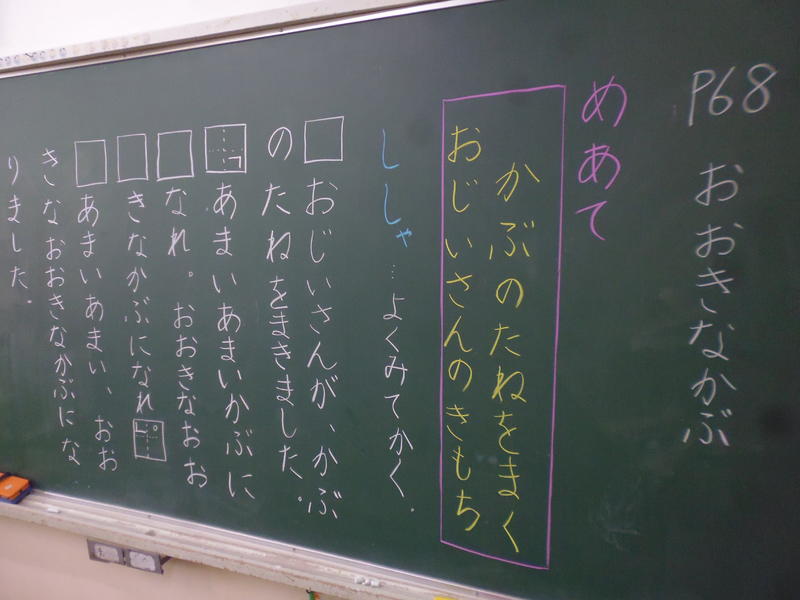 P68 おおきなかぶ
めあて
かぶのたねをまく
おじいさんのきもち
ししゃ…よくみてかく。
□おじいさんが、かぶ
のたねをまきました。
「あまいあまいかぶに
□なれ。おおきなおお
□きなかぶになれ。」
□あまいあまい、おお
きなおおきなかぶにな
りました。